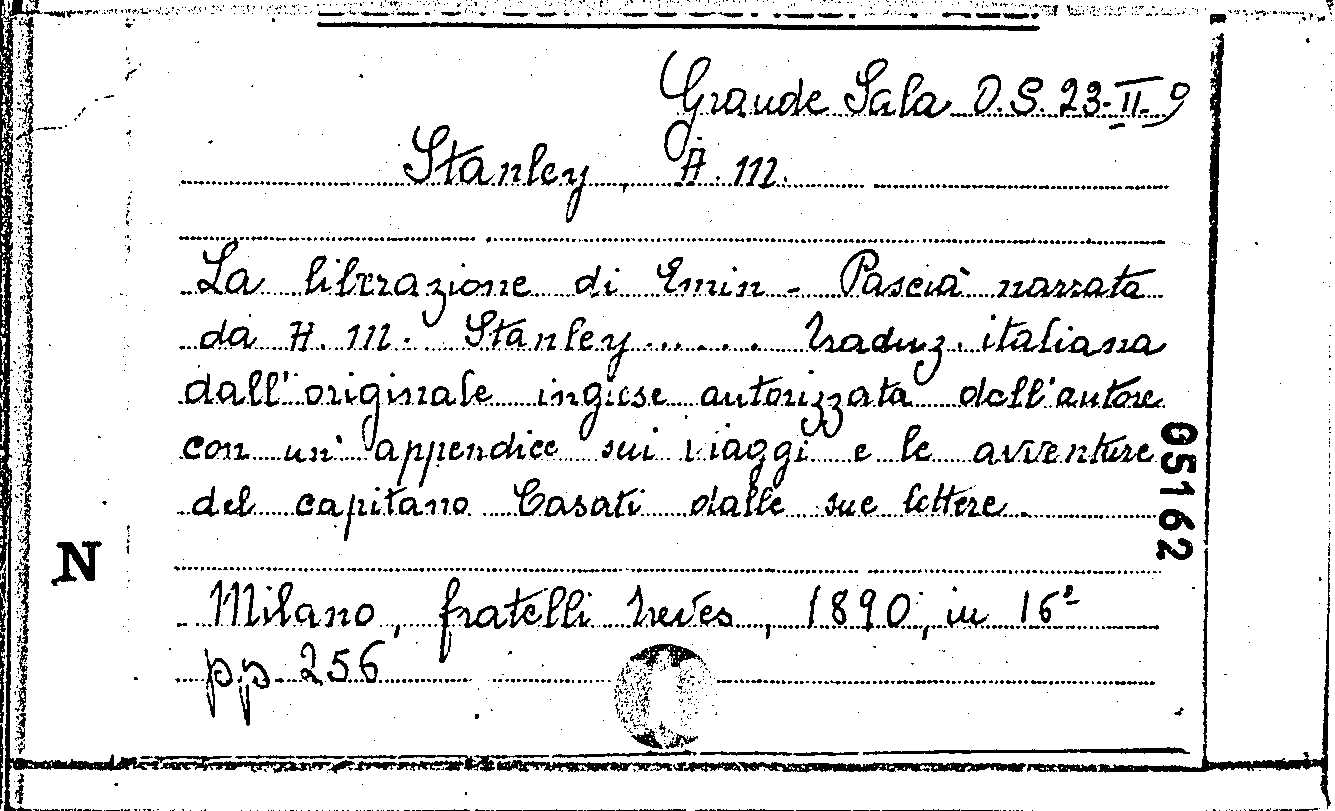 Grande Sala O.S. 23-II-9
Stanley, H. M.
La liberazione di Emin - Pascià narrata
da H. M. Stanley...... Traduz. italiana
dall'originale inglese autorizzata dall'autore
con un' appendice sui viaggi e le avventure
del capitano Casati dalle sue lettere.
05162
N
Milano, fratelli Treves, 1890, in 16º
pp. 256